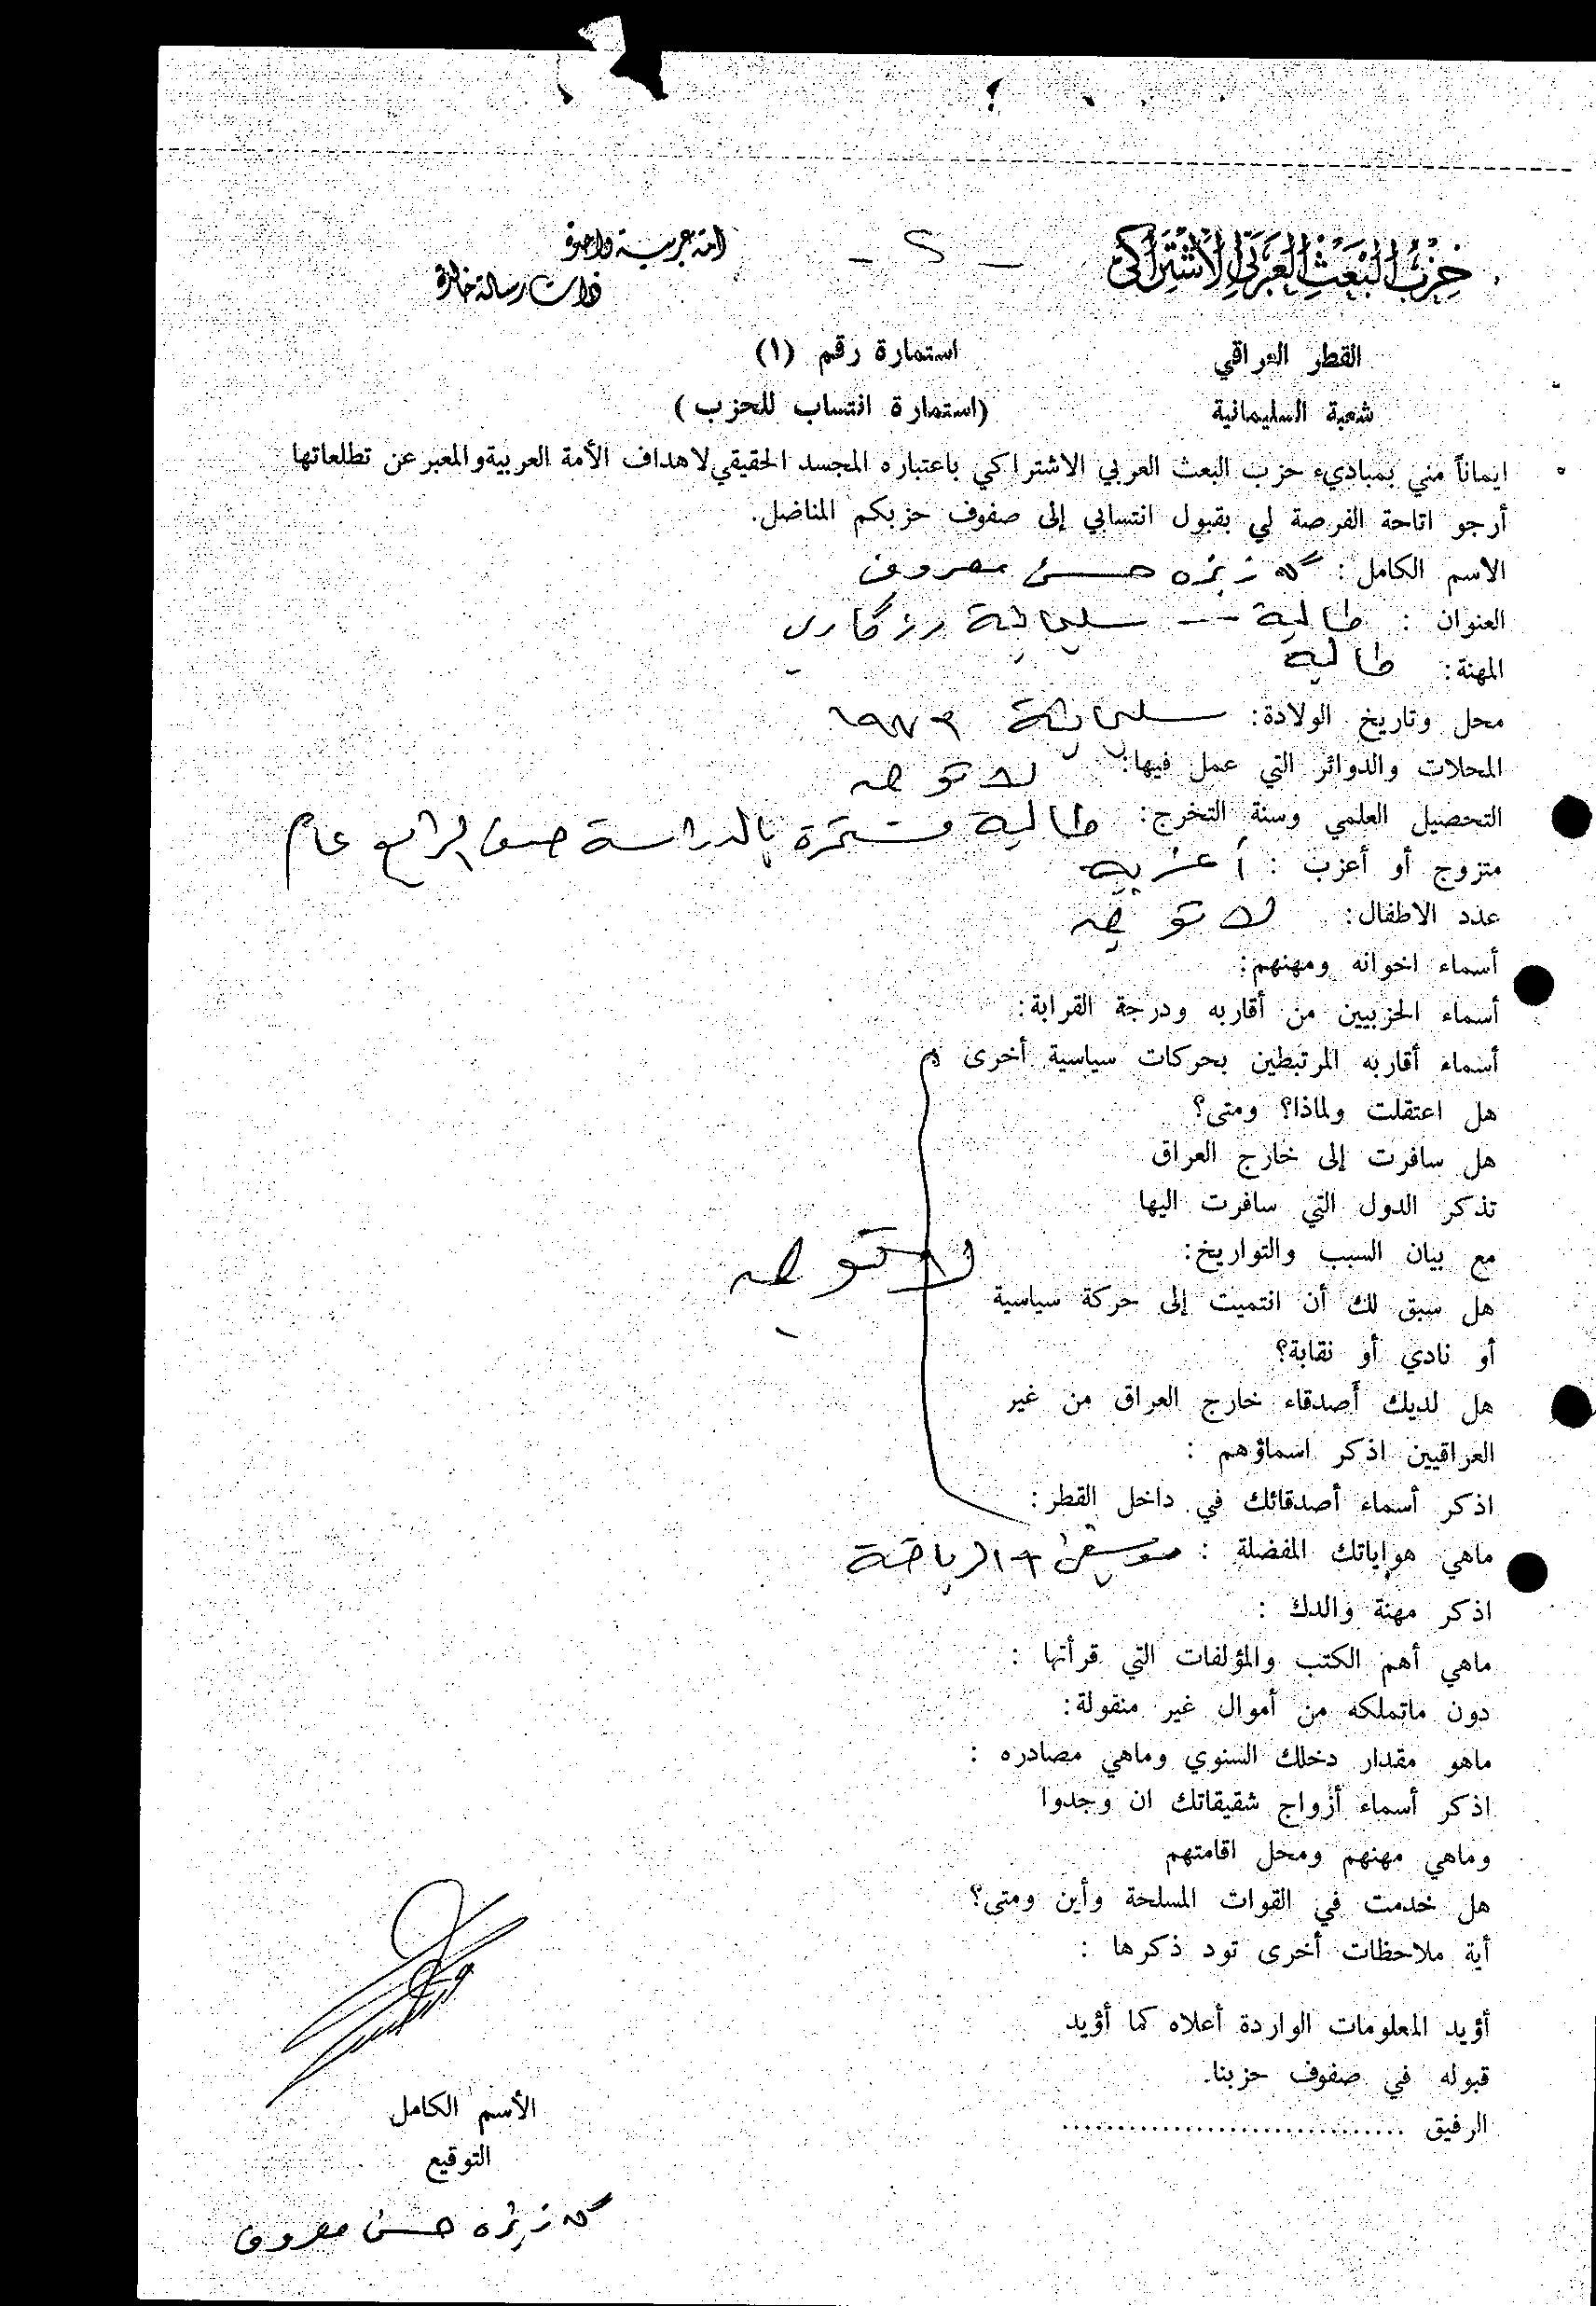 حزب البعث العربي الاشتراكي
- ٢ -
امة عربية واحدة
ذات رسالة خالدة
القطر العراقي
استمارة رقم (١)
شعبة السليمانية
(استمارة انتساب للحزب)
ايماناً مني بمباديء حزب البعث العربي الاشتراكي باعتباره المجسد الحقيقي لاهداف الأمة العربية والمعبر عن تطلعاتها
أرجو اتاحة الفرصة لي بقبول انتسابي إلى صفوف حزبكم المناضل.
الاسم الكامل: حسن معروف
العنوان : طالبة -- سليمانية رزگاري
المهنة: طالبة
محل وتاريخ الولادة: سليمانية ١٩٧٣
المحلات والدوائر التي عمل فيها: لا توجد
التحصيل العلمي وسنة التخرج: طالبة مستمرة بالدراسة صف الرابع عام
متزوج أو أعزب : أعزبة
عدد الاطفال: لا توجد
أسماء اخوانه ومهنهم:
أسماء الحزبيين من أقاربه ودرجة القرابة:
أسماء أقاربه المرتبطين بحركات سياسية أخرى
هل اعتقلت ولماذا؟ ومتى؟
هل سافرت إلى خارج العراق
تذكر الدول التي سافرت اليها
مع بيان السبب والتواريخ:
لا توجد
هل سبق لك أن انتميت إلى حركة سياسية
أو نادي أو نقابة؟
هل لديك أصدقاء خارج العراق من غير
العراقيين اذكر اسماؤهم :
اذكر أسماء أصدقائك في داخل القطر:
ماهي هواياتك المفضلة : موسيقى + الرياضة
اذكر مهنة والدك :
ماهي أهم الكتب والمؤلفات التي قرأتها :
دون ماتملكه من أموال غير منقولة:
ماهو مقدار دخلك السنوي وماهي مصادره :
اذكر أسماء أزواج شقيقاتك ان وجدوا
وماهي مهنهم ومحل اقامتهم
هل خدمت في القوات المسلحة وأين ومتى؟
أية ملاحظات أخرى تود ذكرها :
أؤيد المعلومات الواردة أعلاه كما أؤيد
قبوله في صفوف حزبنا.
الرفيق ..............................
الأسم الكامل
التوقيع
حسن معروف